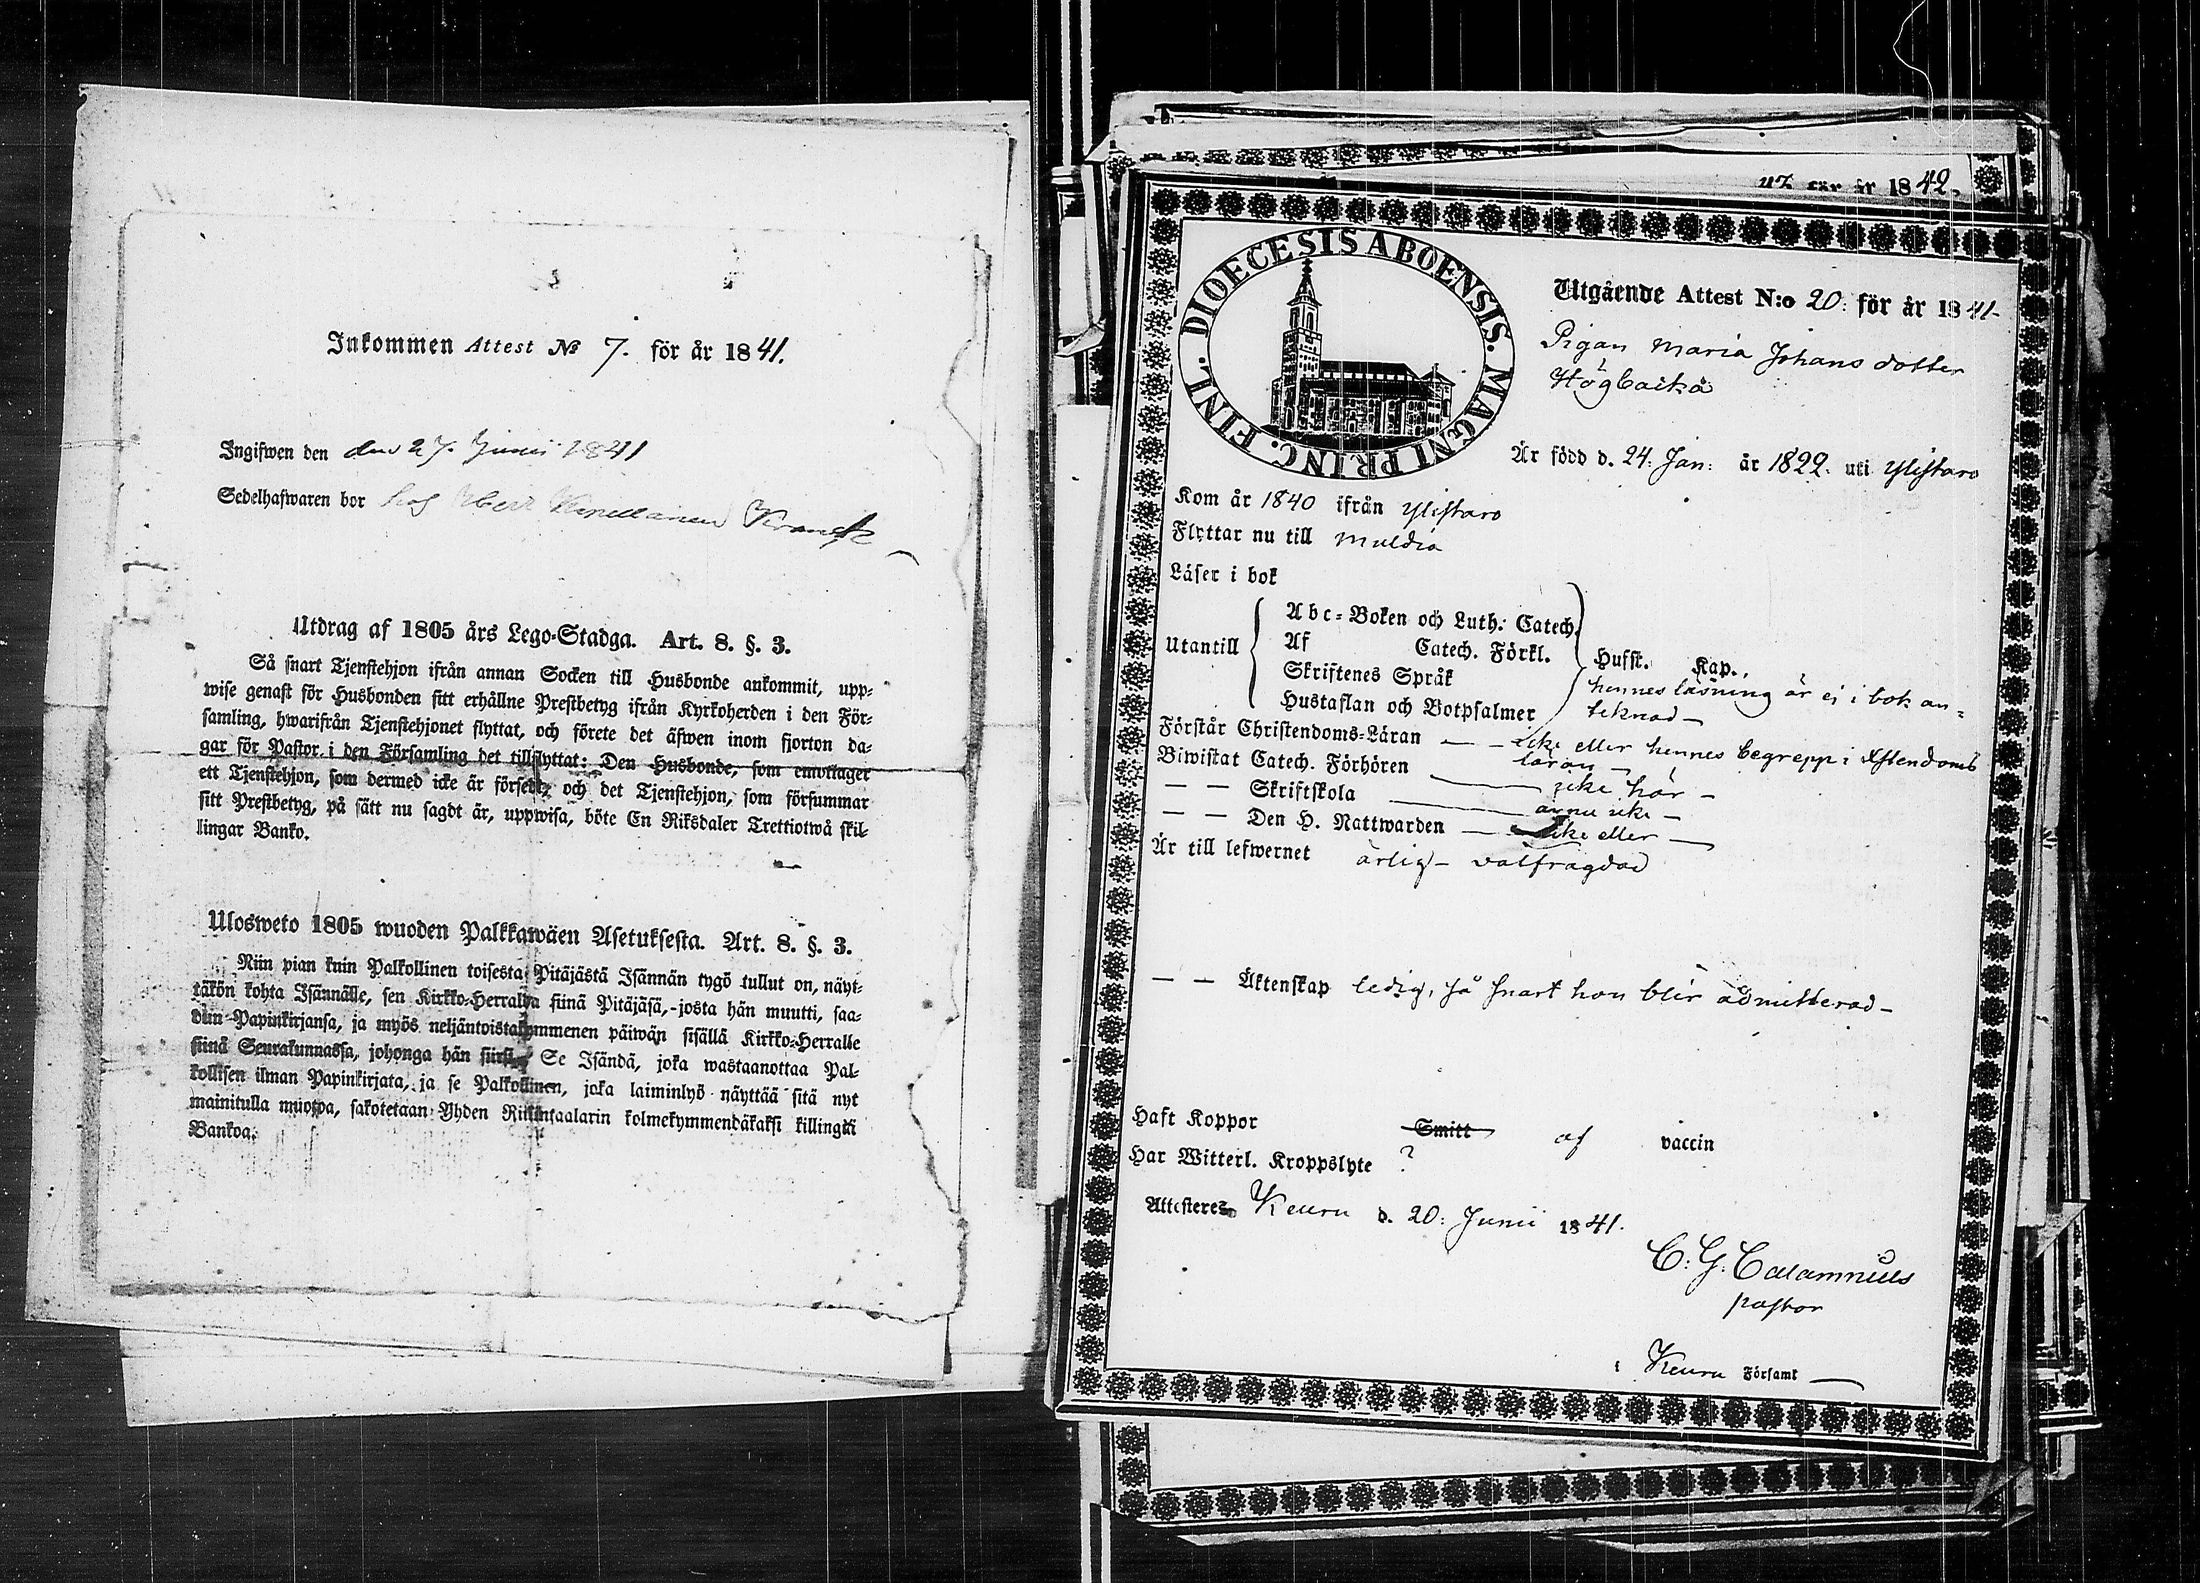 Inkommen Attest № 7. för år 1841.
Ingifwen den den 27. Junii 1841
Sedelhafwaren bor hos Kranck
Utdrag af 1805 års Lego-Stadga. Art. 8. §. 3.
Så snart Tjenstehjon ifrån annan Socken till Husbonde ankommit, upp-
wise genast för Husbonden sitt erhållne Prestbetyg ifrån Kyrkoherden i den För-
samling, hwarifrån Tjenstehjonet flyttat, och förete det äfwen inom fjorton da-
gar för Pastor i den Församling det tillflyttat: Den Husbonde, som emottager
ett Tjenstehjon, som dermed icke är försedt, och det Tjenstehjon, som försummar
sitt Prestbetyg, på sätt nu sagdt är, uppwisa, böte En Riksdaler Trettiotwå skil-
lingar Banko.
Ulosweto 1805 wuoden Palkkawäen Asetuksesta. Art. 8. §. 3.
Niin pian kuin Palkollinen toisesta Pitäjästä Isännän tygö tullut on, näyt-
täkön kohta Isännälle, sen Kirkko-Herralda siinä Pitäjäsä, josta hän muutti, saa-
dun Papinkirjansa, ja myös neljäntoistakymmenen päiwän sisällä Kirkko-Herralle
siinä Seurakunnassa, johonga hän siirsi. Se Isändä, joka wastaanottaa Pal-
kollisen ilman Papinkirjata, ja se Palkollinen, joka laiminlyö näyttää sitä nyt
mainitulla muotoa, sakotetaan Yhden Riikintaalarin kolmekymmendäkaksi killingiä
Bankoa.
47 för år 1842.
DIOECESIS ABOENSIS. MAGNI PRINC. FINL.
Utgående Attest N:o 20: för år 1841-
Pigan Maria Johans dotter
Högbacka
Är född d. 24: Jan: år 1822. uti Ylistaro
Kom år 1840 ifrån Ylistaro
Flyttar nu till Muldia
Läser i bok
Utantill
Abc-Boken och Luth: Catech.
Af Catech. Förkl.
Skriftenes Språk
Hustaflan och Botpsalmer
Hufst. Kap.
hennes läsning är ej i bok an-
teknad -
Förstår Christendoms-Läran - - icke eller hennes begrepp i Xstendoms
läran -
Biwistat Catech. Förhören - icke här -
- - Skriftskola - ännu icke -
- - Den H. Nattwarden - icke eller -
Är till lefwernet ärlig - välfrägdad
- - Äktenskap ledig, så snart hon blir admitterad -
Haft Koppor Smitt af vaccin
Har Witterl. Kroppslyte ?
Attesteres Keuru d. 20: Junii 1841.
C. G. Calamnius
pastor
i Keuru Församl -